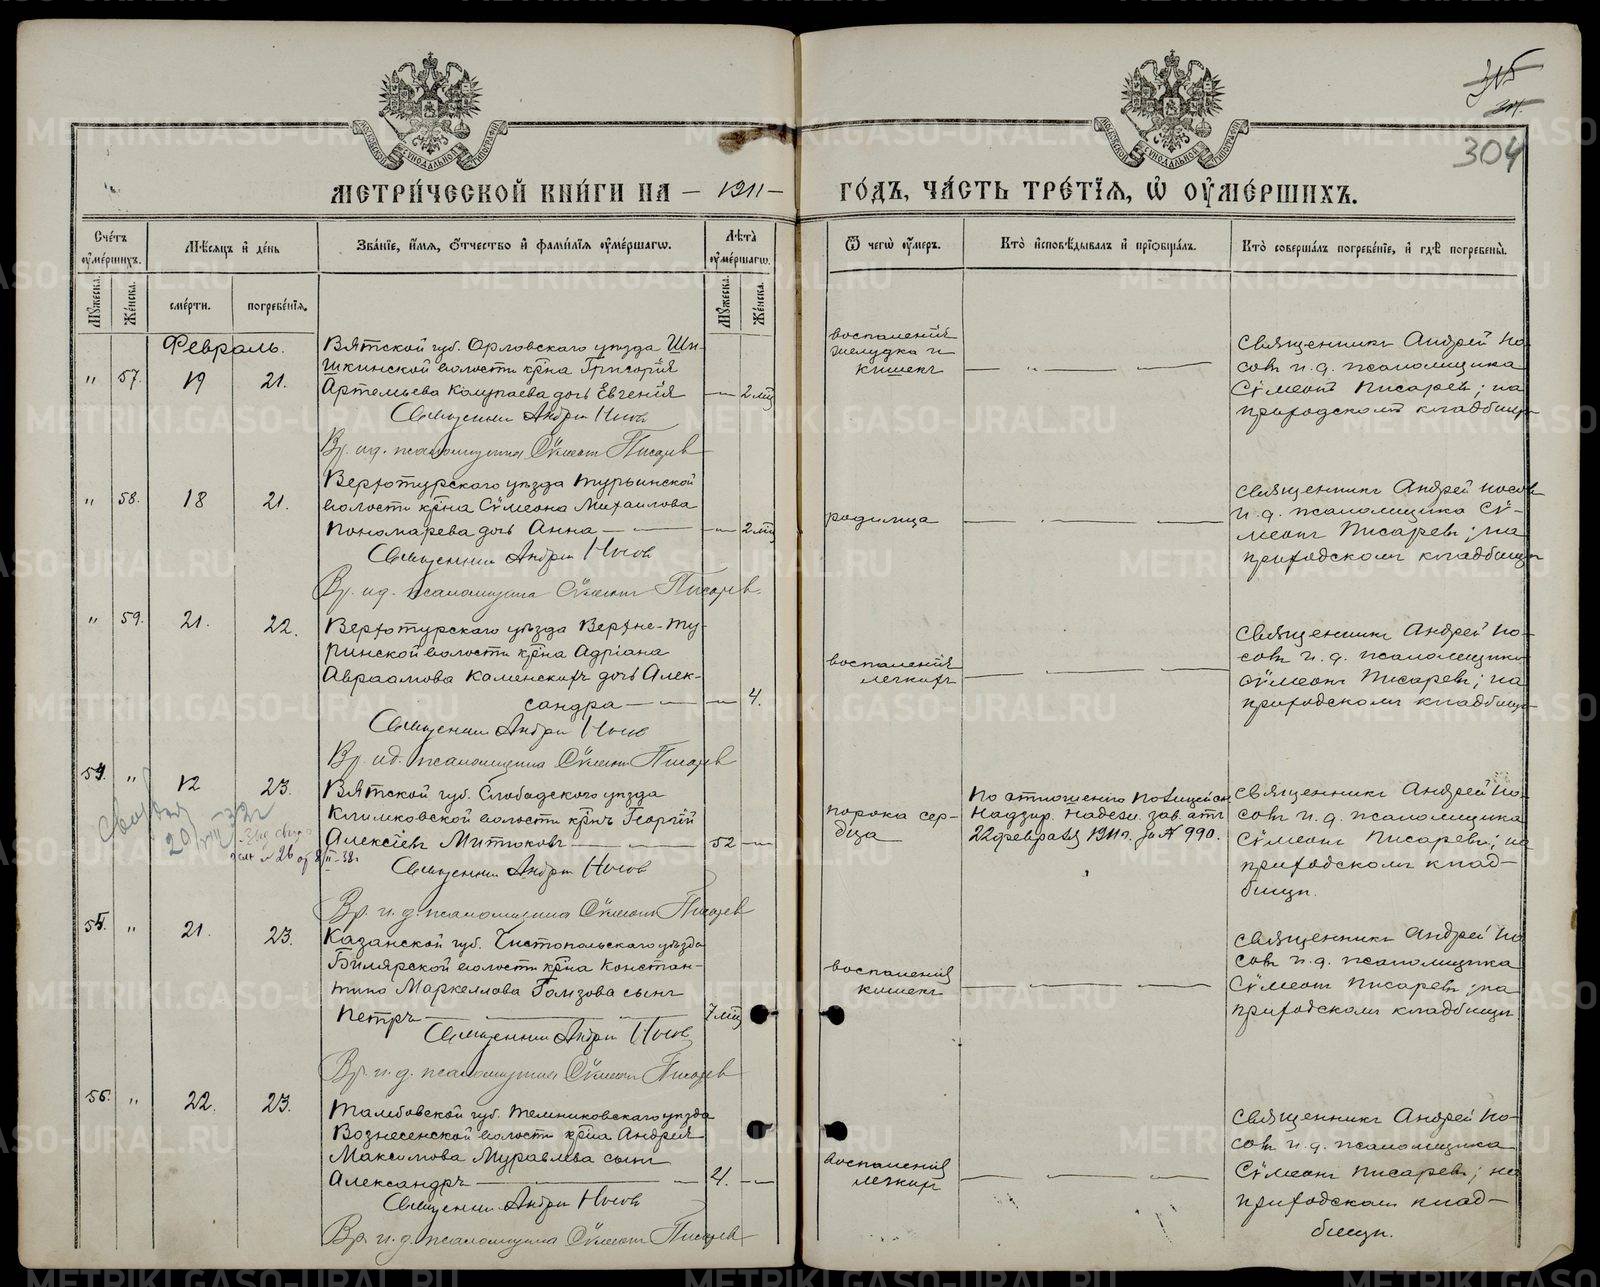 315
304
МЕТРИ́ЧЕСКОЙ КНИ́ГИ НА – 1911 –
ГО́ДЪ, ЧА́СТЬ ТРЕ́ТІѦ, Ѡ҆ ОУ҆МЕ́РШИХЪ.
Сче́тъ оу҆ме́ршихъ.
Мѣ́сѧцъ и҆ де́нь
Зва́нїе, и҆́мѧ, ѻ҆́тчество и҆ фами́лїѧ оу҆ме́ршагѡ.
Лѣ́та оу҆ме́ршагѡ.
Ѿ чегѡ̀ оу҆́меръ.
Кто̀ и҆сповѣ́дывалъ и҆ прїѡбща́лъ.
Кто̀ соверша́лъ погребе́нїе, и҆ гдѣ̀ погребены̀.
Мꙋ́жеска.
Же́нска.
сме́рти.
погребе́нїѧ.
Мꙋ́жеска.
Же́нска.
Февраль.
" 57. 19 21.
Вятской губ. Орловскаго уѣзда Ши-
шкинской волости кр-на Григорія
Артемьева Колупаева дочь Евгенія — 2 мц
Священникъ Андрей Носовъ
Вр. и.д. псаломщика Сѵмеонъ Писаревъ
воспаленія
желудка и
кишекъ
Священникъ Андрей Но-
совъ и. д. псаломщика
Сѵмеонъ Писаревъ; на
приходскомъ кладбищѣ
" 58. 18 21.
Верхотурскаго уѣзда Турьинской
волости кр-на Сѵмеона Михаилова
Пономарева дочь Анна — 2 мц
Священникъ Андрей Носовъ
Вр. и.д. псаломщика Сѵмеонъ Писаревъ
родимца
Священникъ Андрей Носовъ
и. д. псаломщика Сѵ-
меонъ Писаревъ; на
приходскомъ кладбищѣ
" 59. 21. 22.
Верхотурскаго уѣзда Верхне-Ту-
ринской волости кр-на Адріана
Авраамова Каменскихъ дочь Алек-
сандра — 4.
Священникъ Андрей Носовъ
Вр. и.д. псаломщика Сѵмеонъ Писаревъ
воспаленія
легкихъ
Священникъ Андрей Но-
совъ и. д. псаломщика
Сѵмеонъ Писаревъ; на
приходскомъ кладбищѣ
54. " 12 23.
Вятской губ. Слободского уѣзда
Климковской волости кр-нъ Георгій
Алексіевъ Митюковъ — 52 —
Священникъ Андрей Носовъ
Вр. и. д. псаломщика Сѵмеонъ Писаревъ
порока сер-
дца
По отношенію Полицейск.
Надзир. Надежд. зав. отъ
22 февраля 1911 г. за № 990.
Священникъ Андрей Но-
совъ и. д. псаломщика
Сѵмеонъ Писаревъ; на
приходскомъ клад-
бищѣ.
55. " 21. 23.
Казанской губ. Чистопольскаго уѣзда
Билярской волости кр-на Констан-
тина Маркеллова Голизова сынъ
Петръ — 7 мц
Священникъ Андрей Носовъ
Вр. и. д. псаломщика Сѵмеонъ Писаревъ
воспаленія
кишекъ
Священникъ Андрей Но-
совъ и. д. псаломщика
Сѵмеонъ Писаревъ; на
приходскомъ кладбищѣ
56. " 22. 23.
Тамбовской губ. Темниковскаго уѣзда
Вознесенской волости кр-на Андрея
Максимова Муравлева сынъ
Александръ — 4. —
Священникъ Андрей Носовъ
Вр. и. д. псаломщика Сѵмеонъ Писаревъ
воспаленія
легкихъ
Священникъ Андрей Но-
совъ и. д. псаломщика
Сѵмеонъ Писаревъ; на
приходскомъ клад-
бищѣ.
METRIKI.GASO-URAL.RU